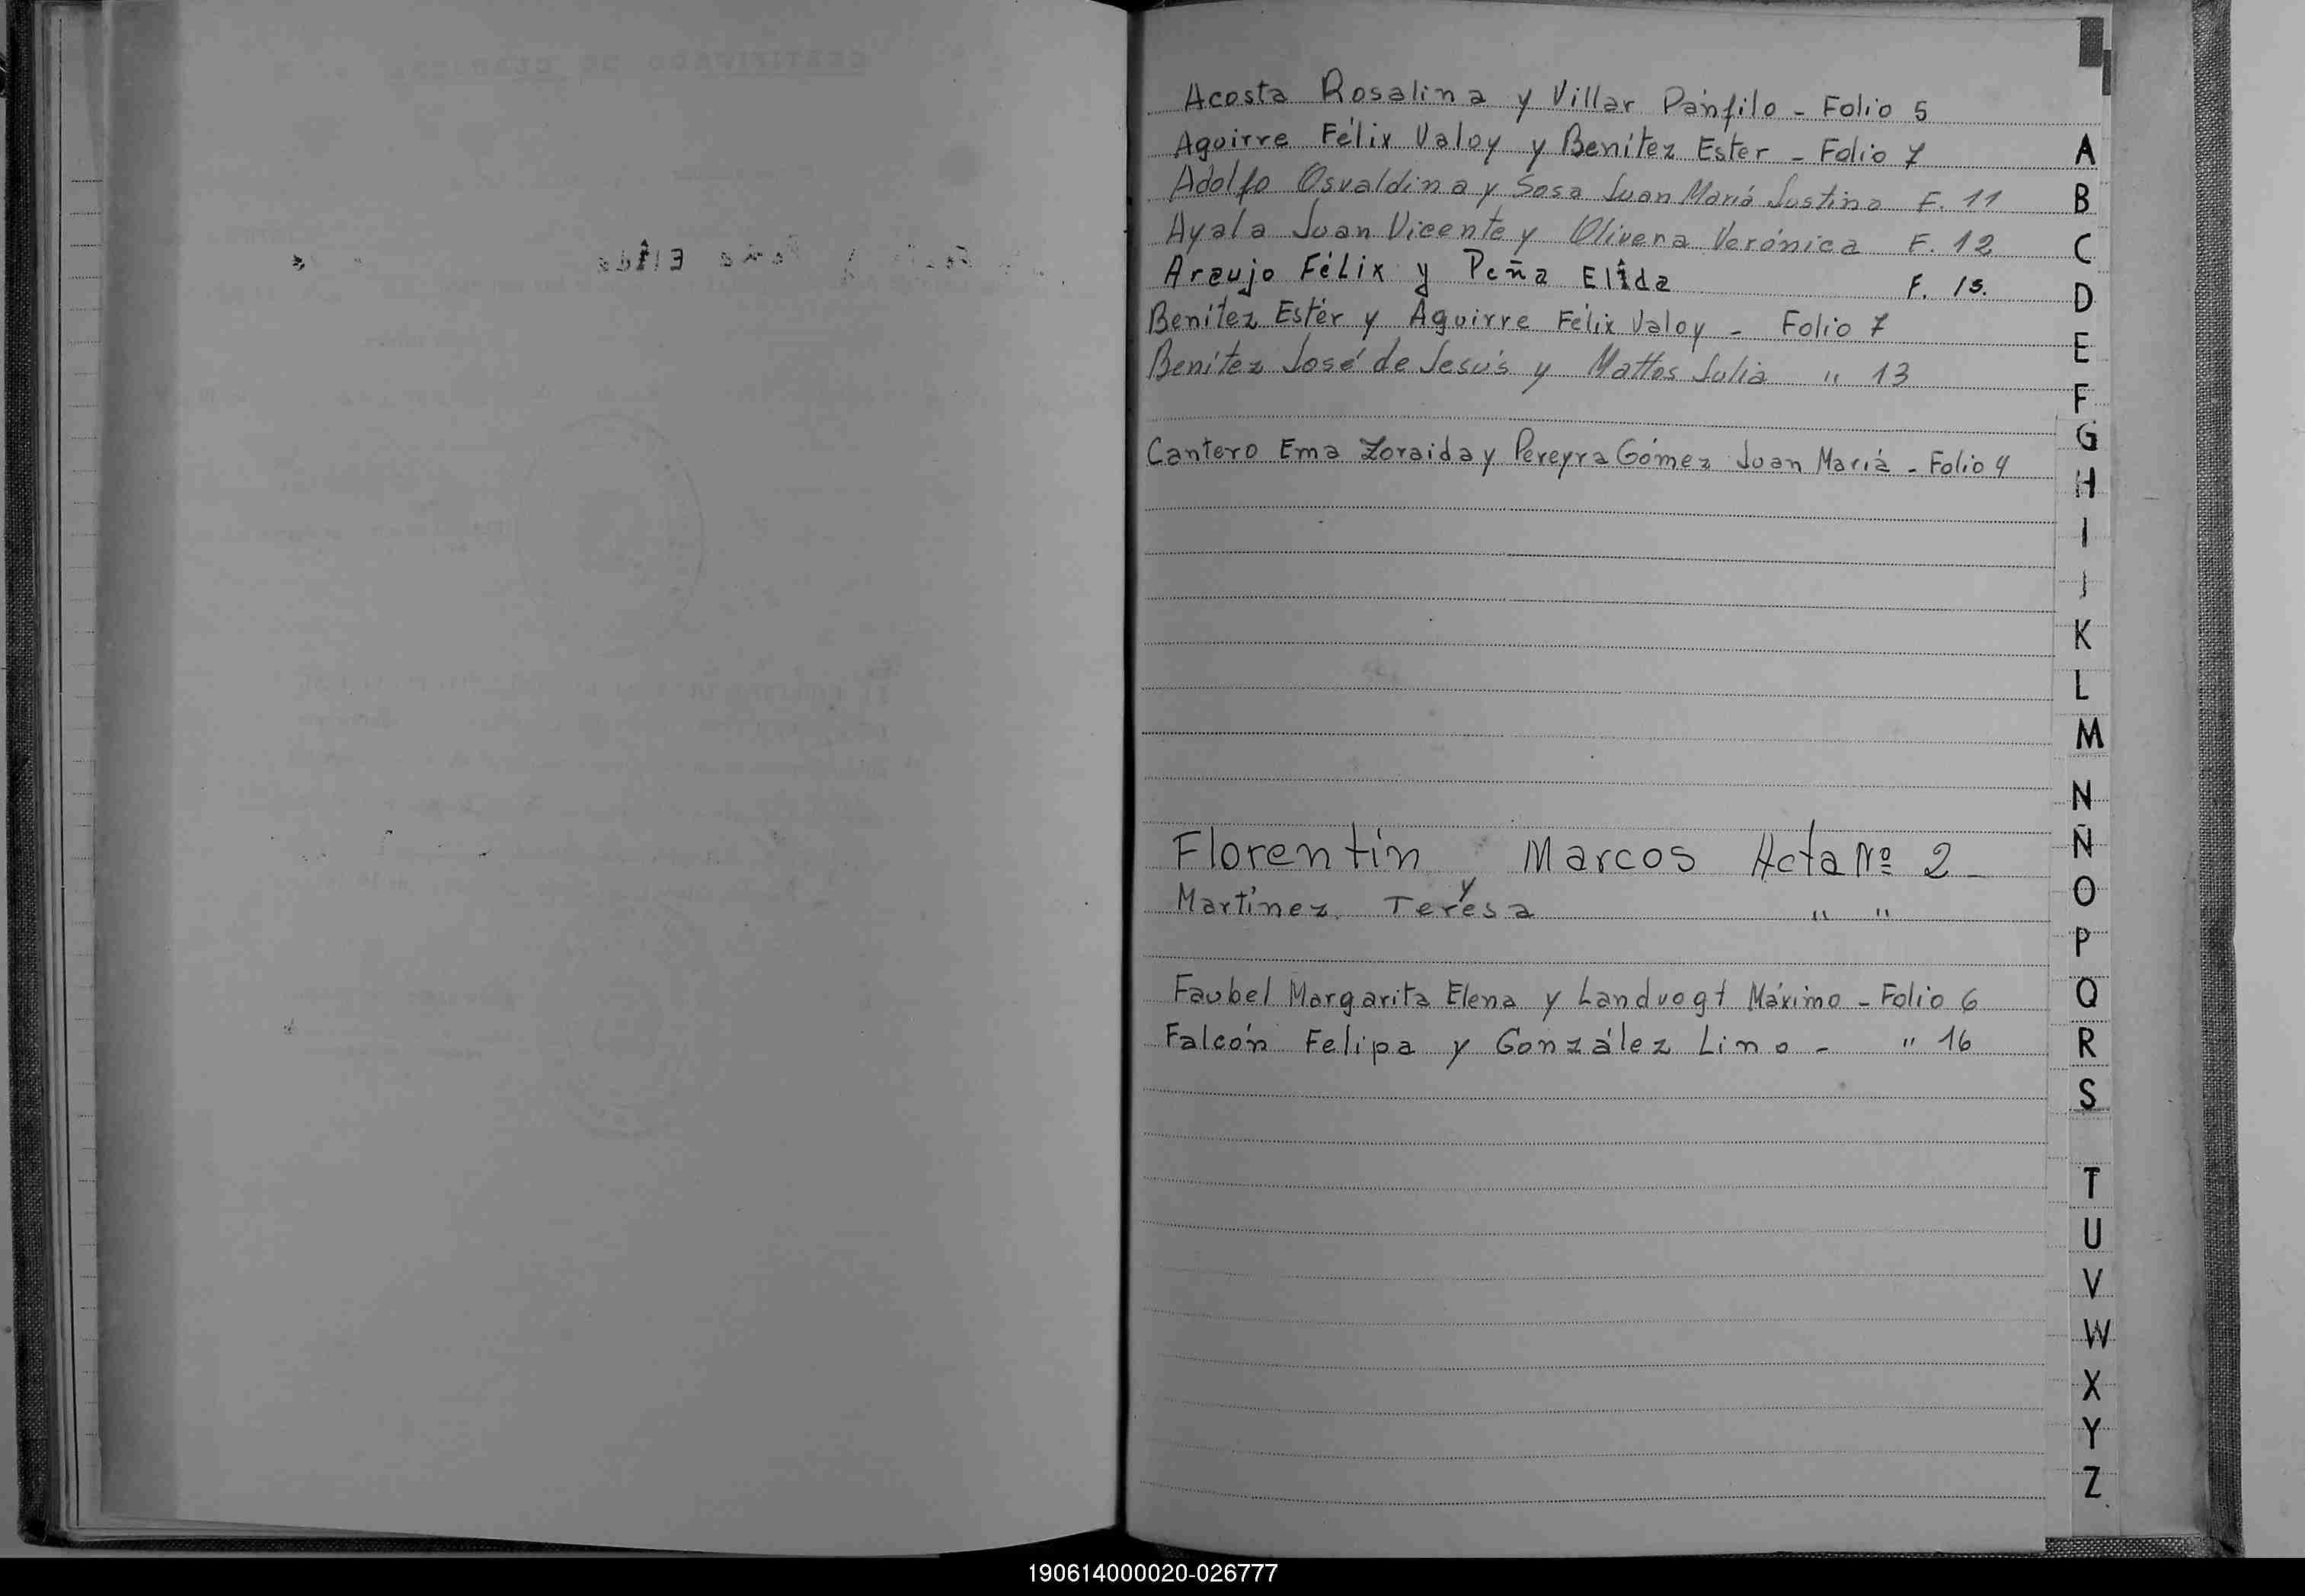 Acosta Rosalina y Villar Pánfilo - Folio 5
Aguirre Félix Valoy y Benítez Ester - Folio 7
Adolfo Osvaldina y Sosa Juan Mariá Justino F. 11
Ayala Juan Vicente y Olivera Verónica F. 12
Araujo Félix y Peña Elida F. 15.
Benítez Ester y Aguirre Félix Valoy - Folio 7
Benítez José de Jesús y Mattos Julia " 13
Cantero Ema Zoraida y Pereyra Gómez Juan Mariá - Folio 4
Florentín Marcos Acta Nº 2 -
y
Martínez Teresa " "
Faubel Margarita Elena y Landvogt Máximo - Folio 6
Falcón Felipa y González Lino - " 16
A
B
C
D
E
F
G
H
I
J
K
L
M
N
Ñ
O
P
Q
R
S
T
U
V
W
X
Y
Z
190614000020-026777